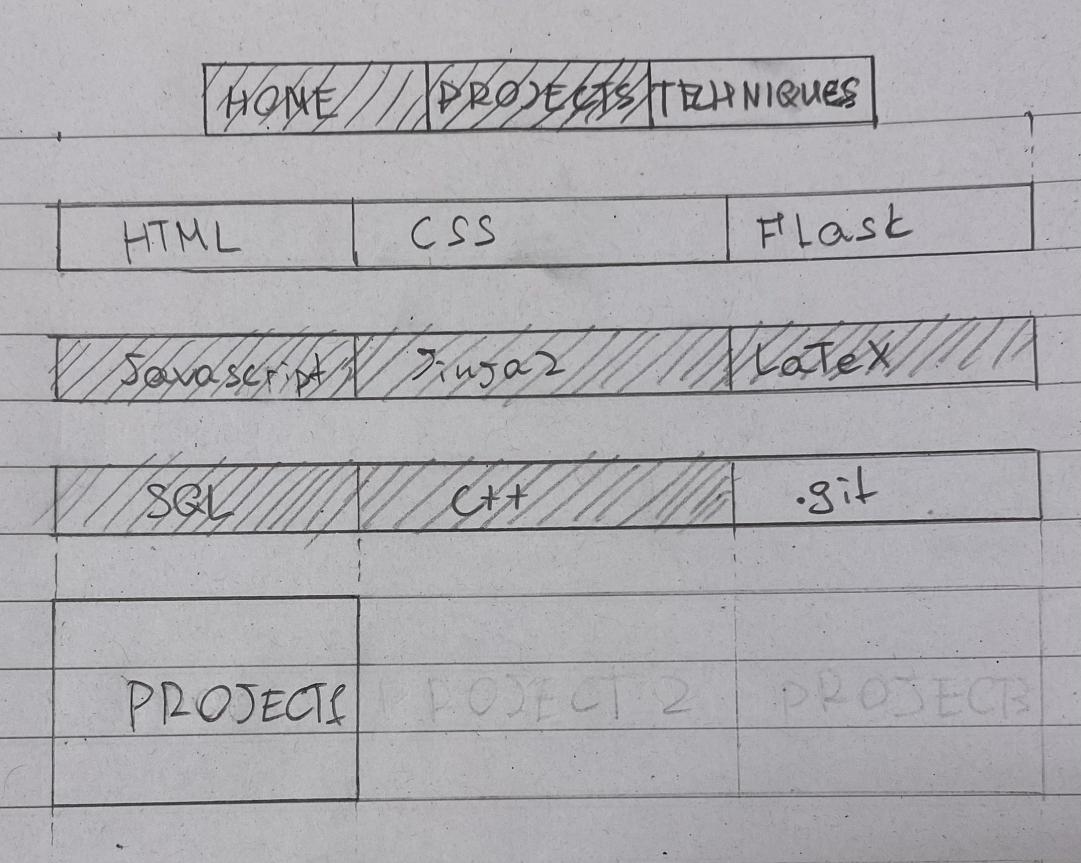 HOME PROJECTS TECHNIQUES
HTML CSS Flask
Javascript Jinja2 LaTeX
SQL C++ .git
PROJECT1 PROJECT 2 PROJECT3